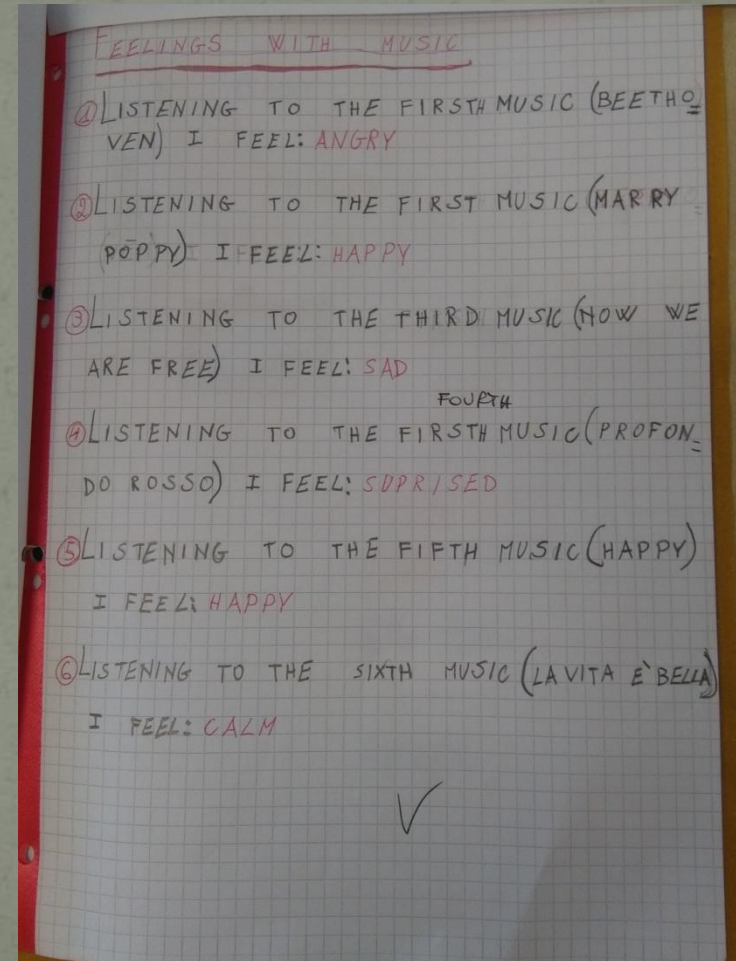 FEELINGS WITH MUSIC
① LISTENING TO THE FIRSTH MUSIC (BEETHO=
VEN) I FEEL: ANGRY
② LISTENING TO THE FIRST MUSIC (MARRY
POPPY) I FEEL: HAPPY
③ LISTENING TO THE THIRD MUSIC (NOW WE
ARE FREE) I FEEL: SAD
FOURTH
④ LISTENING TO THE FIRSTH MUSIC (PROFON=
DO ROSSO) I FEEL: SUPRISED
⑤ LISTENING TO THE FIFTH MUSIC (HAPPY)
I FEEL: HAPPY
⑥ LISTENING TO THE SIXTH MUSIC (LA VITA E' BELLA)
I FEEL: CALM